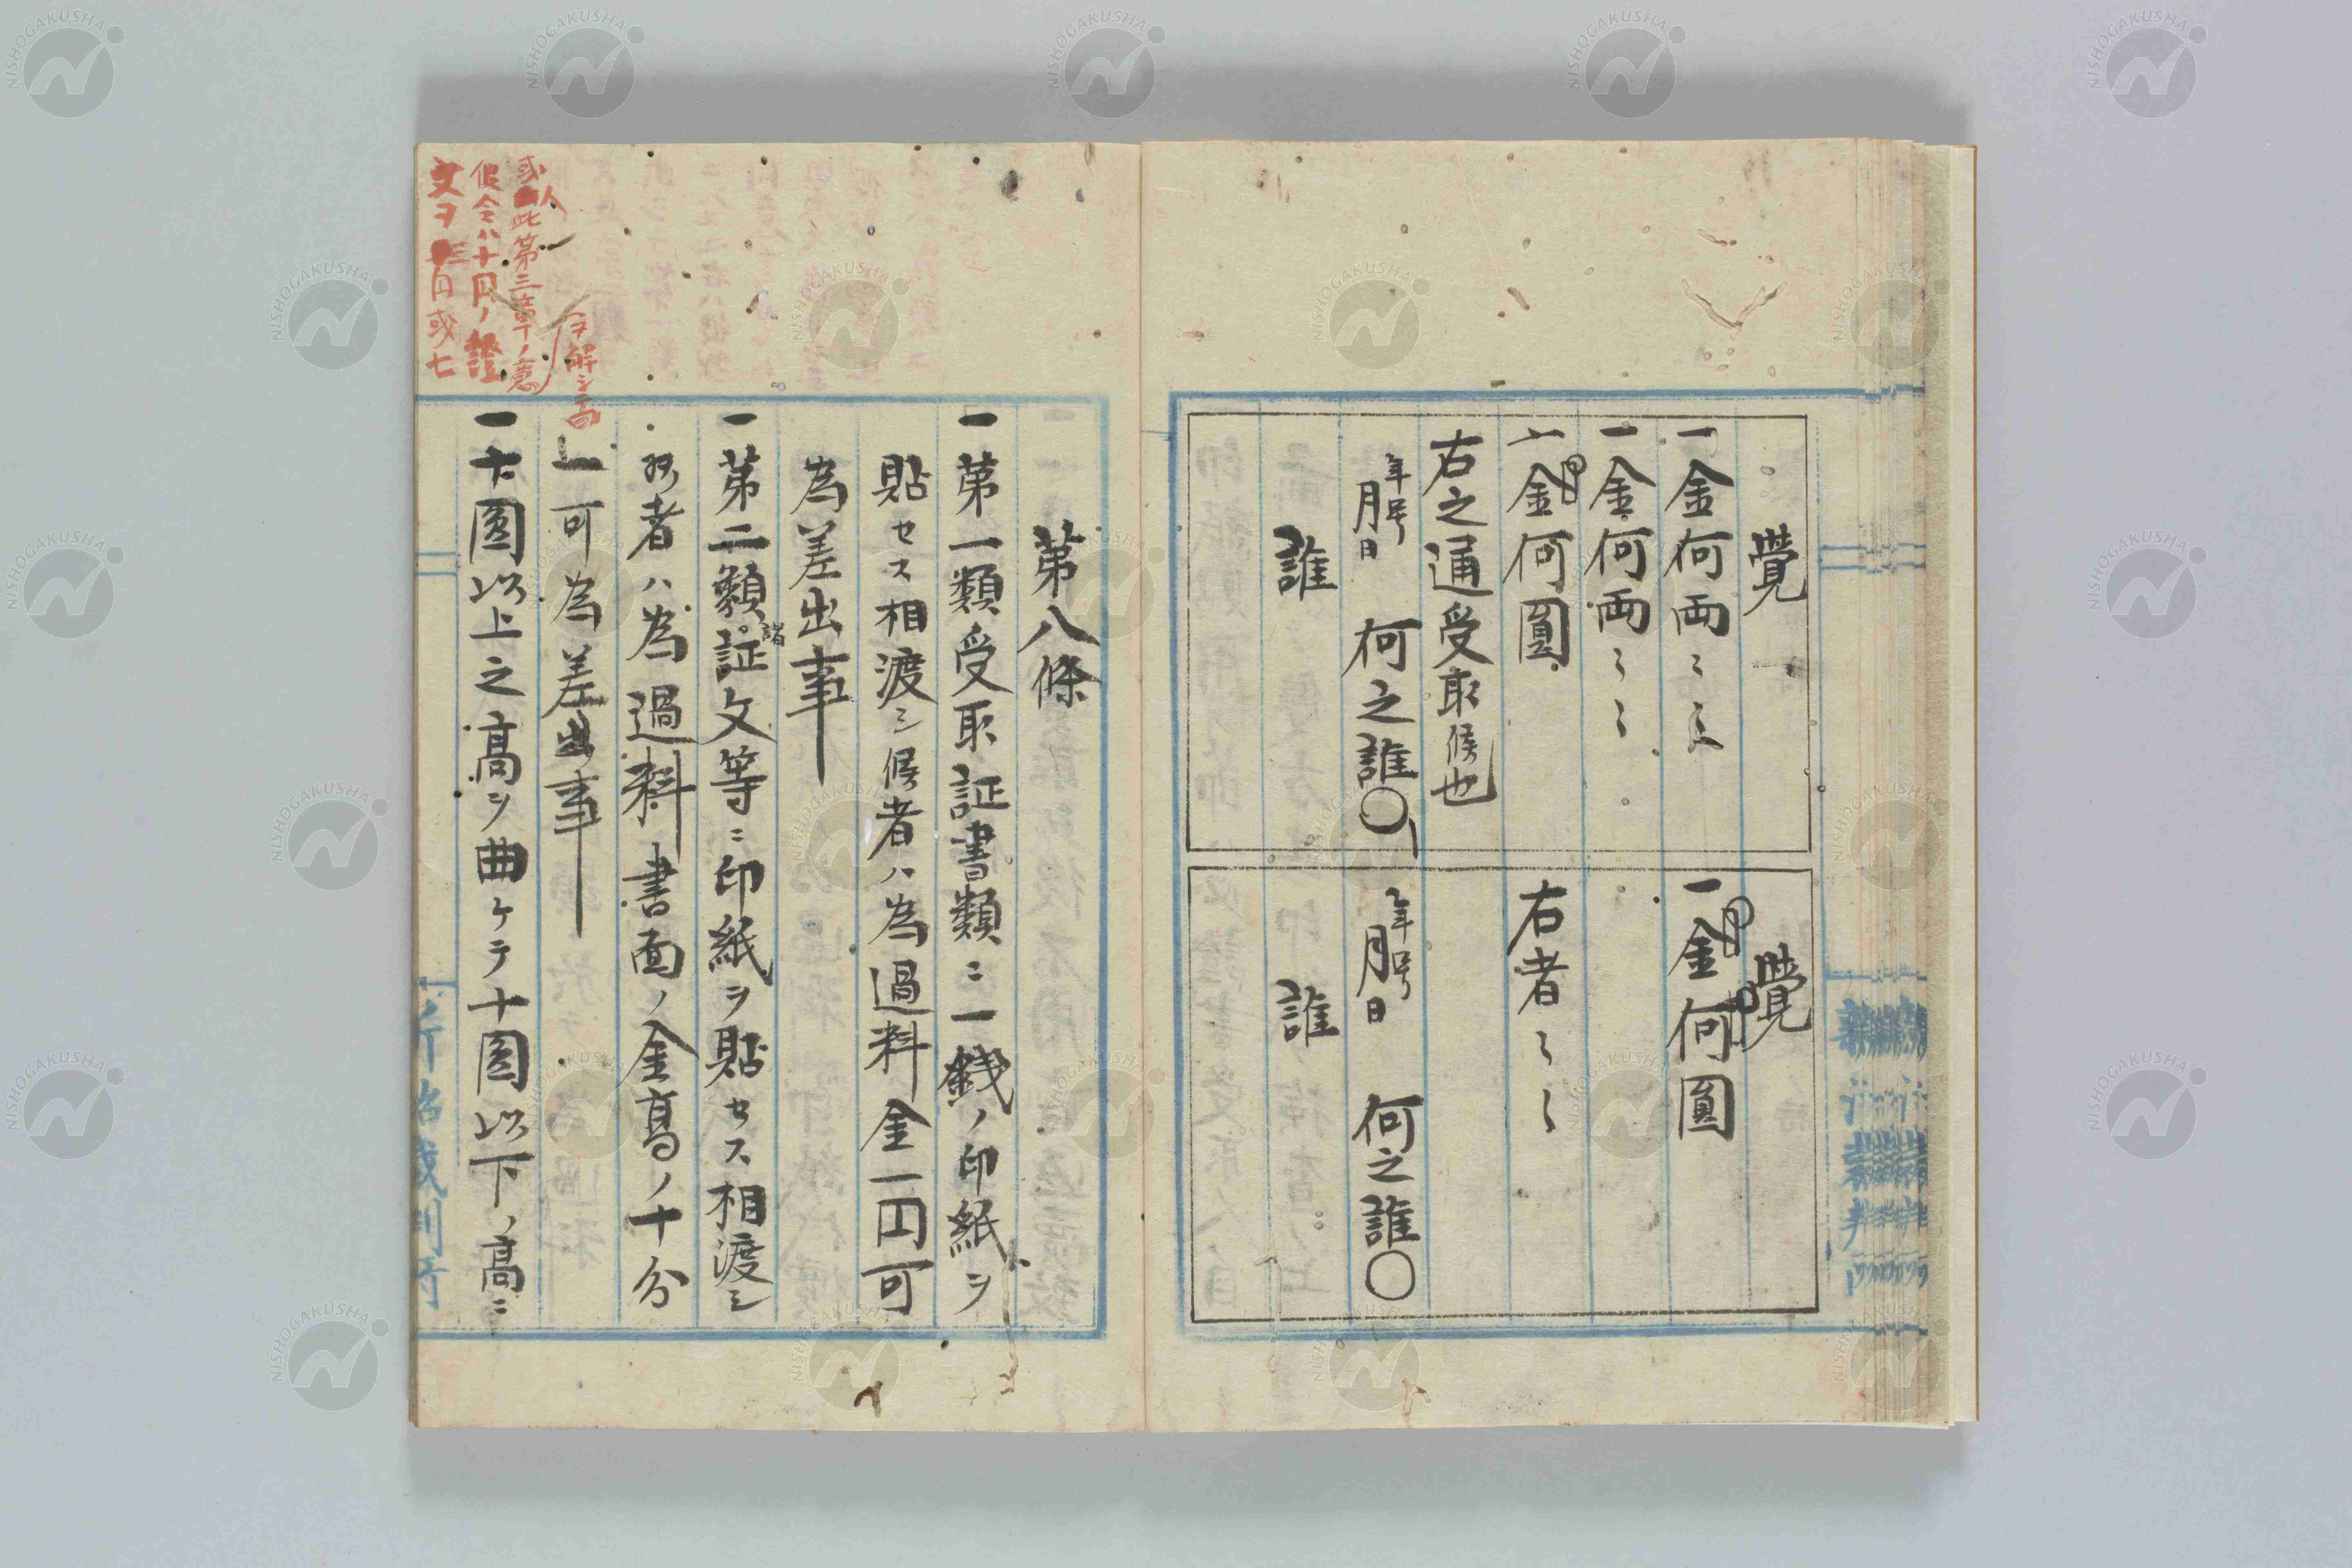 覺
一金何両〻〻
一金何両〻〻
一金何圓
右之通受取候也
年号
月日
何之誰〇
誰
覺
一金何圓
右者〻〻
年号
月日
何之誰〇
誰
第八條
一第一類受取証書類ニ一銭ノ印紙ヲ
貼セス相渡シ候者ハ為過料金一円可
為差出事
一第二類諸証文等ニ印紙ヲ貼セス相渡シ
候者ハ為過料書面ノ金高ノ十分
一可為差出事
一十圓以上之高ヲ曲ケテ十圓以下ノ高ニ
或人此第三章ノ意
ヲ解シテ曰
假令ハ十円ノ證
文ヲ三円或七
NISHOGAKUSHA